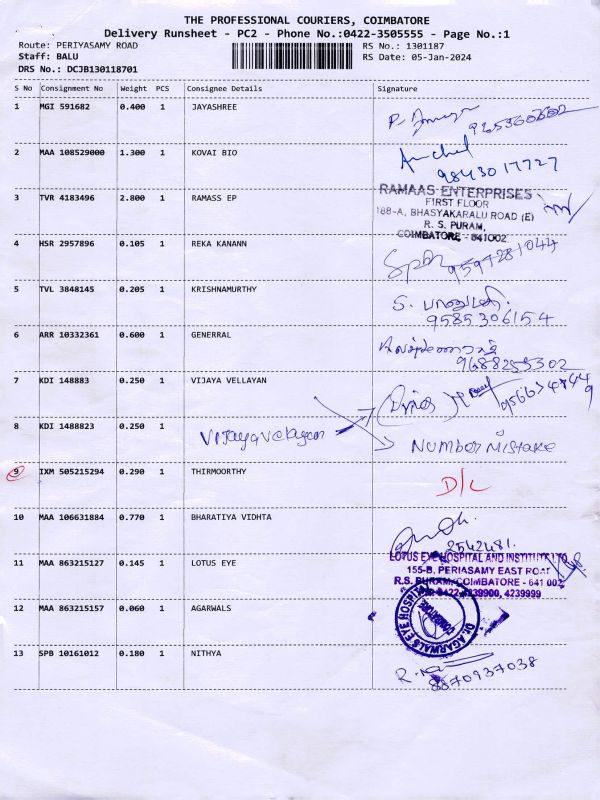 THE PROFESSIONAL COURIERS, COIMBATORE
Delivery Runsheet - PC2 - Phone No.:0422-3505555 - Page No.:1
Route: PERIYASAMY ROAD RS No.: 1301187
Staff: BALU RS Date: 05-Jan-2024
DRS No.: DCJB130118701
S No Consignment No Weight PCS Consignee Details Signature
1 MGI 591682 0.400 1 JAYASHREE
2 MAA 108529000 1.300 1 KOVAI BIO
9843017727
3 TVR 4183496 2.800 1 RAMASS EP
RAMAAS ENTERPRISES
FIRST FLOOR
188-A, BHASYAKARALU ROAD (E)
R. S. PURAM,
COIMBATORE - 641002
4 HSR 2957896 0.105 1 REKA KANANN
5 TVL 3848145 0.205 1 KRISHNAMURTHY
9585306154
6 ARR 10332361 0.600 1 GENERRAL
9688255302
7 KDI 148883 0.250 1 VIJAYA VELLAYAN
8 KDI 1488823 0.250 1
Vijayavelayan Number Mistake
9 IXM 505215294 0.290 1 THIRMOORTHY D/L
10 MAA 106631884 0.770 1 BHARATIYA VIDHTA
2542481.
11 MAA 863215127 0.145 1 LOTUS EYE
LOTUS EYE HOSPITAL AND INSTITUTE LTD
155-B, PERIASAMY EAST ROAD
R.S. PURAM, COIMBATORE - 641 002
0422-4239900, 4239999
12 MAA 863215157 0.060 1 AGARWALS
DR. AGARWALS EYE HOSPITAL
COIMBATORE
13 SPB 10161012 0.180 1 NITHYA
8870937038